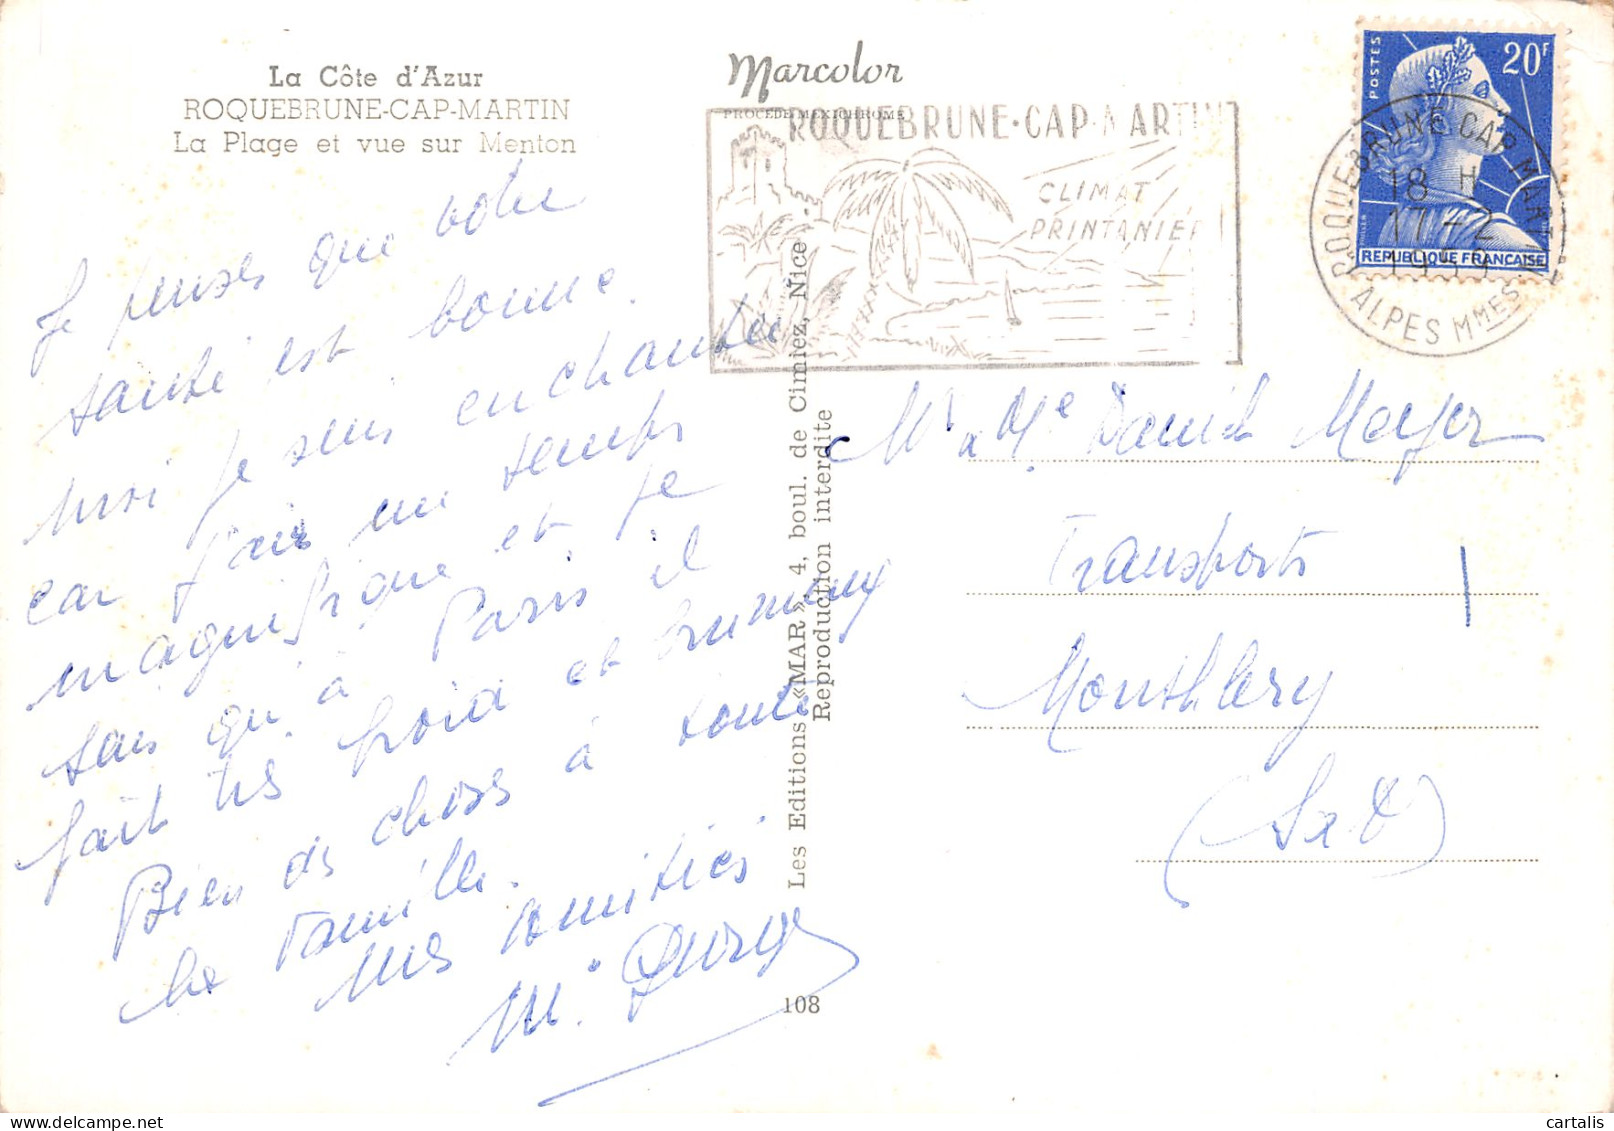 La Côte d'Azur
ROQUEBRUNE-CAP-MARTIN
La Plage et vue sur Menton
Je penses que votre
santé est bonne.
Moi je suis enchantée
car j'ai eu un temps
magnifique et je
sais qu'à Paris il
fait très froid et brumeux
Bien des choses à toute
la famille.
Mes amitiés
M.
Marcolor
PROCÉDÉ MEXICHROME
ROQUEBRUNE-CAP-MARTIN
CLIMAT
PRINTANIER
POSTES
20F
REPUBLIQUE FRANÇAISE
ROQUEBRUNE CAP MARTIN
18 H
17-2
1959
ALPES MMES
Les Editions «MAR», 4, boul. de Cimiez, Nice
Reproduction interdite
108
Mr & Me Daniel Meyer
Transports
Monthléry
(S et O)
cartalis